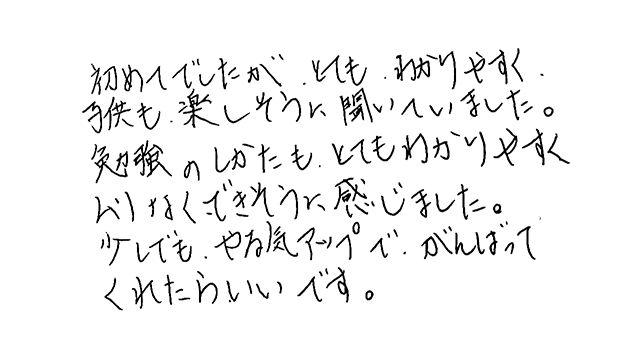 初めてでしたが、とても、わかりやすく、
子供も、楽しそうに聞いていました。
勉強のしかたも、とてもわかりやすく
ムリなくできそうに感じました。
少しでも、やる気アップで、がんばって
くれたらいいです。